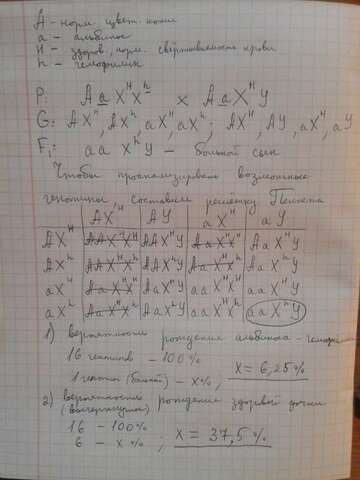 A - норм. цвет. кожи
a - альбинос
H - здоров. норм. свёртываемость крови
h - гемофилик
P: Aa XᴴXʰ × Aa XᴴY
G: AXᴴ, AXʰ, aXᴴ, aXʰ; AXᴴ, AY, aXᴴ, aY
F₁: aa XʰY - больной сын
Чтобы проанализировать возможные
генотипы, составим решётку Пеннета
AXᴴ AY aXᴴ aY
AXᴴ AAXᴴXᴴ AAXᴴY AaXᴴXᴴ AaXᴴY
AXʰ AAXᴴXʰ AAXʰY AaXᴴXʰ AaXʰY
aXᴴ AaXᴴXᴴ AaXᴴY aaXᴴXᴴ aaXᴴY
aXʰ AaXᴴXʰ AaXʰY aaXᴴXʰ aaXʰY
1) вероятность рождения альбиноса-гемофилика
16 генотипов - 100%
1 генотип (больной) - x%, x = 6,25%
2) вероятность рождения здоровой дочери
16 - 100%
6 - x% ; x = 37,5%